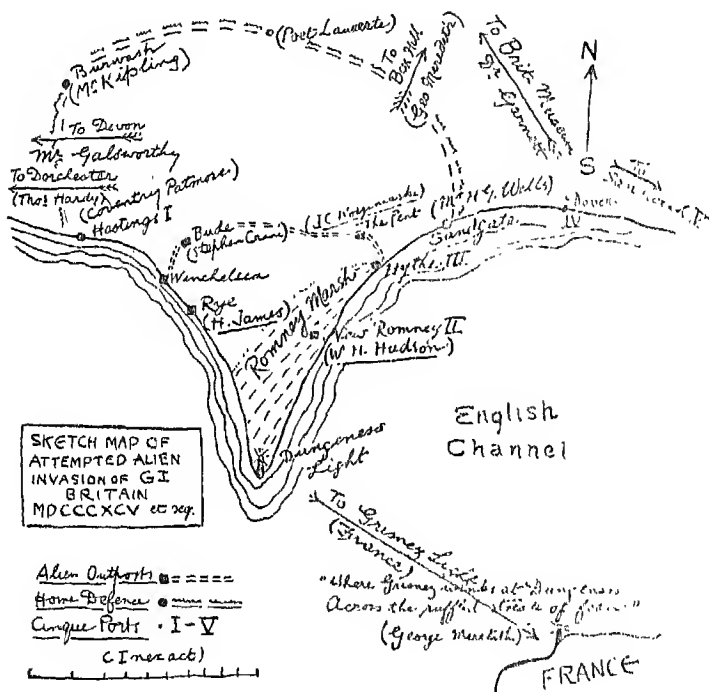 (Poet Laureate)
Burwash
(Mr Kipling)
To
Box Hill
(Geo Meredith)
To Brit. Museum
Dr. Garnett
N
S
To Devon
Mr. Galsworthy
To Dorchester
(Thos Hardy)
(Coventry Patmore)
Hastings I
To
Bude
(Stephen Crane)
The Pent
(Mr H G. Wells)
Sandgate
Dover
IV
Winchelsea
Hythe III
Rye
(H. James)
Romney Marsh
New Romney II
(W H. Hudson)
English
Channel
Dungeness
Light
SKETCH MAP OF
ATTEMPTED ALIEN
INVASION OF GT
BRITAIN
MDCCCXCV et seq.
To Grisnez Light
(France)
"Where Grisnez winks at Dungeness
Across the ruffled of "
(George Meredith)
Alien Outposts
Home Defence
Cinque Ports · I-V
(Inexact)
FRANCE